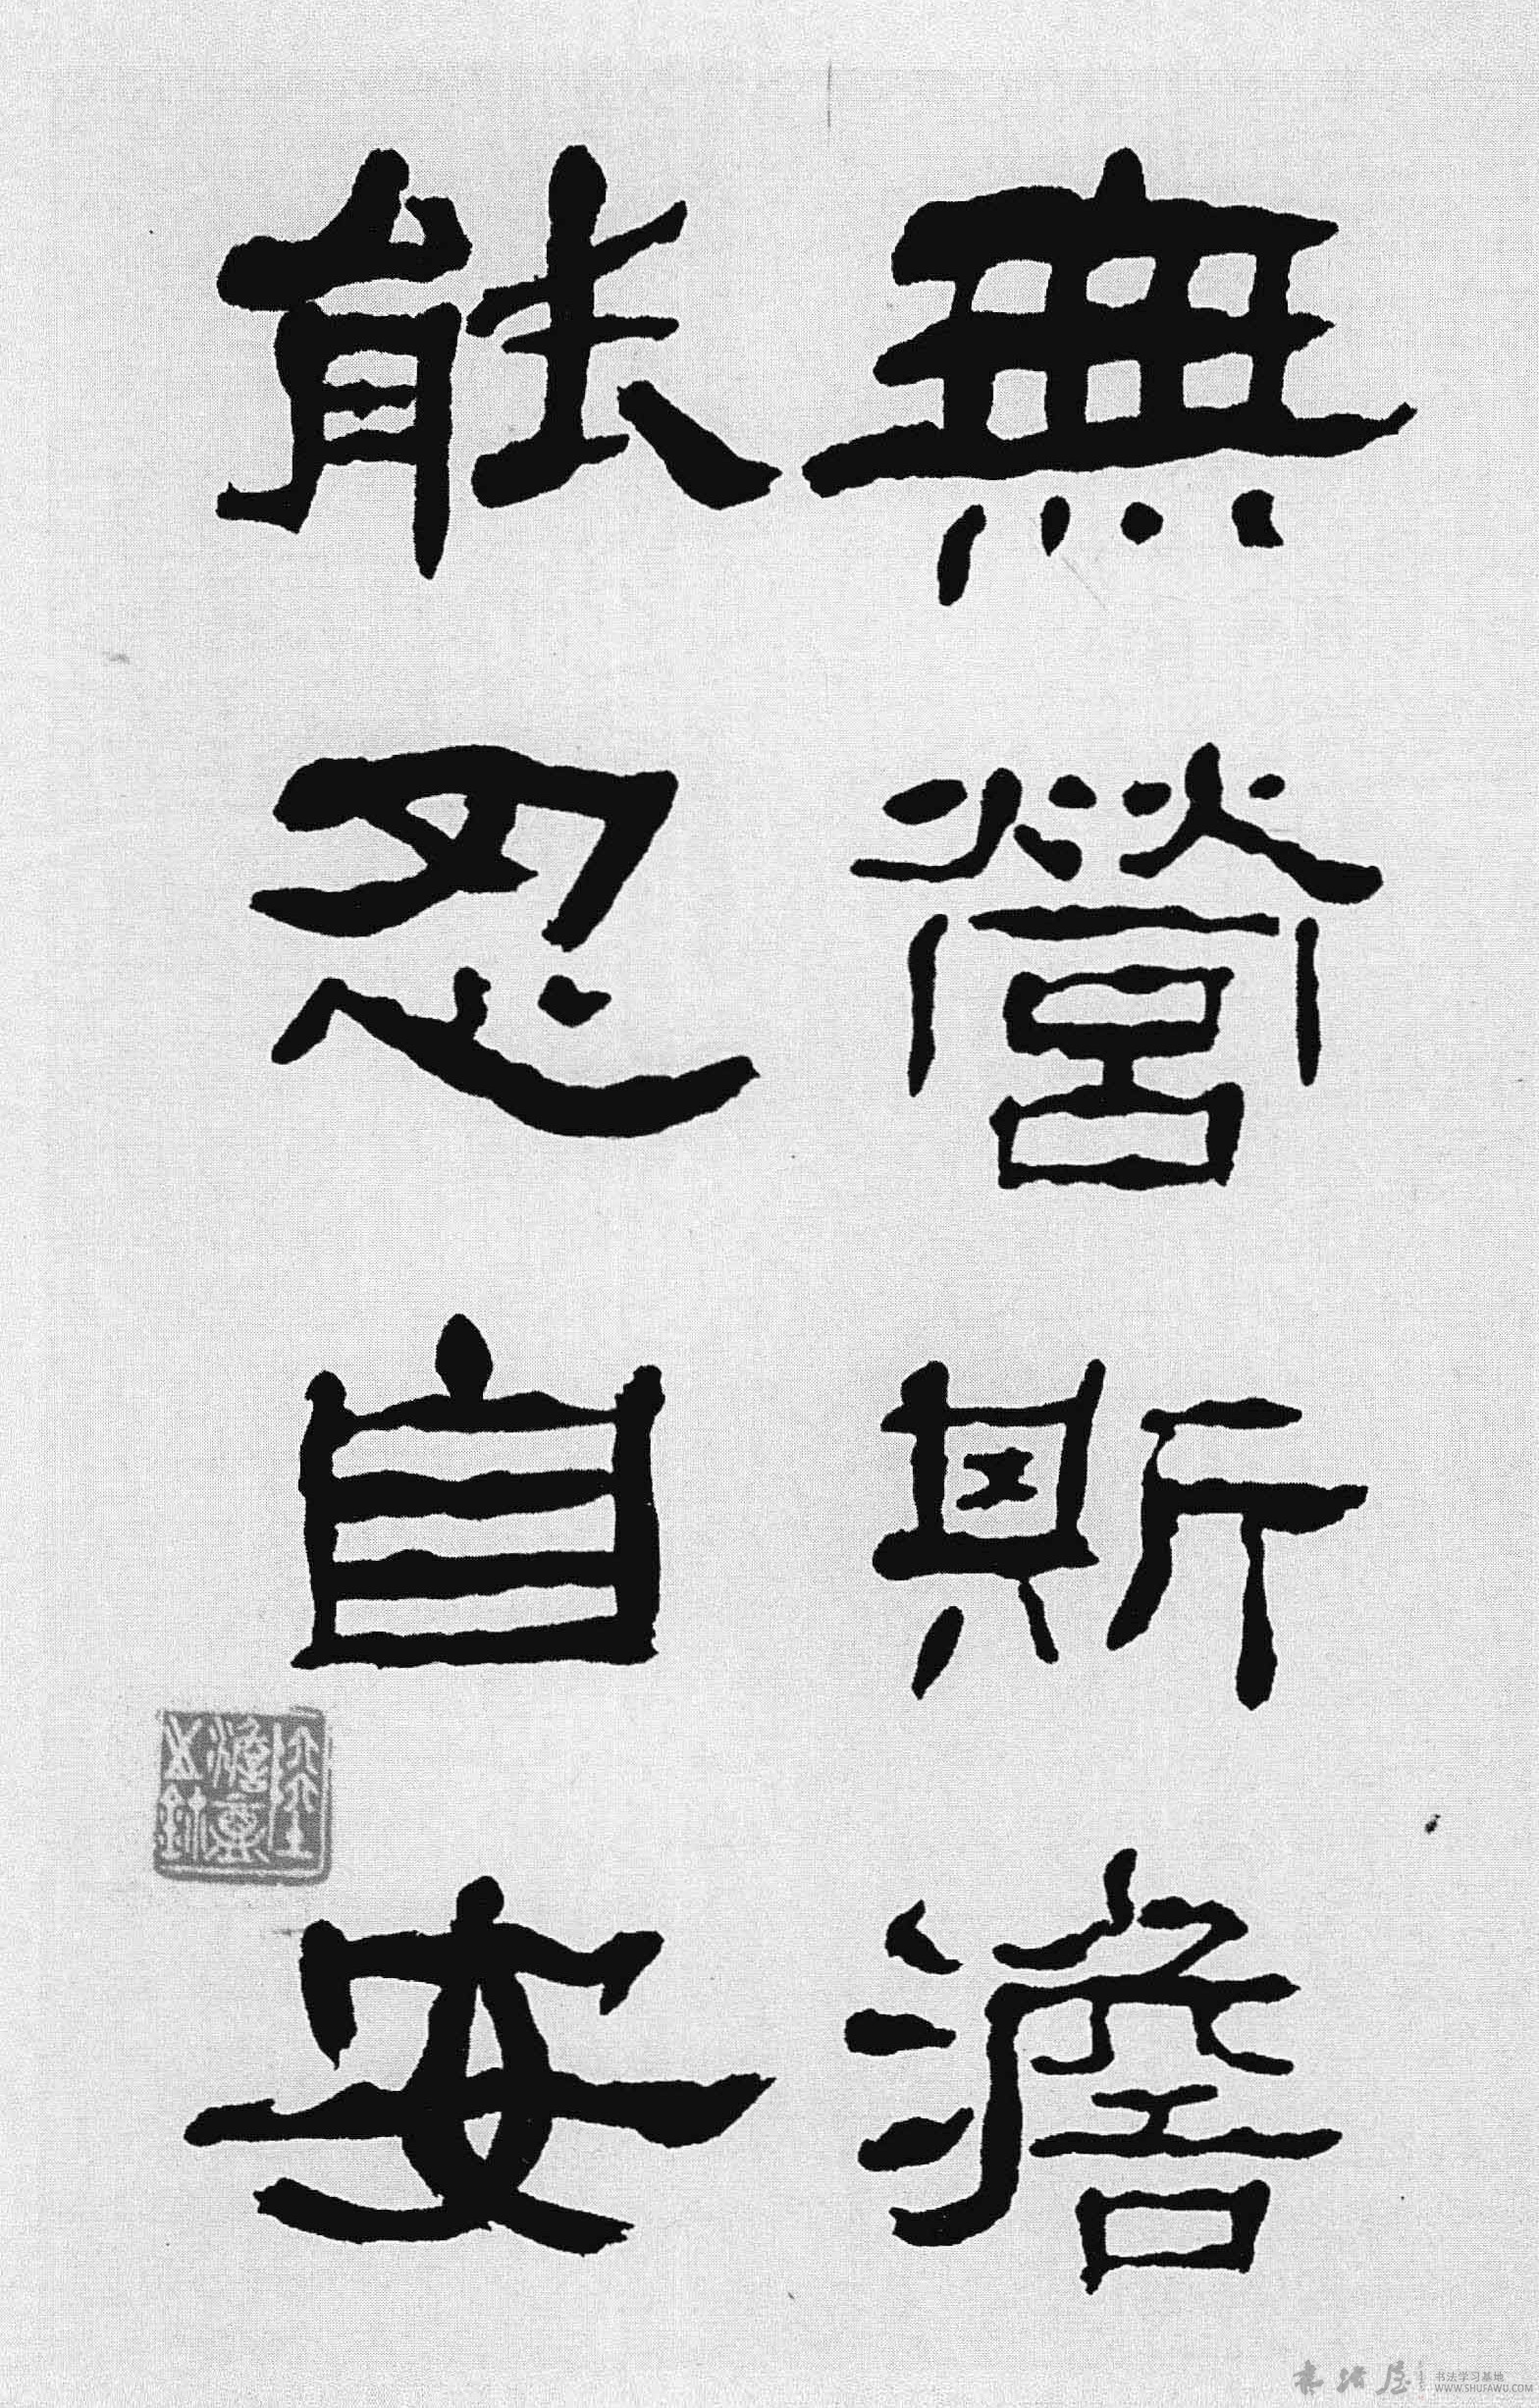 無營斯澹
能忍自安
书法屋 书法学习基地
WWW.SHUFAWU.COM